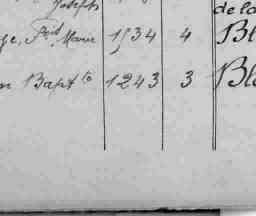 Joseph de la
Marie 1534 4 Bl
n Bapt te 1243 3 Bl